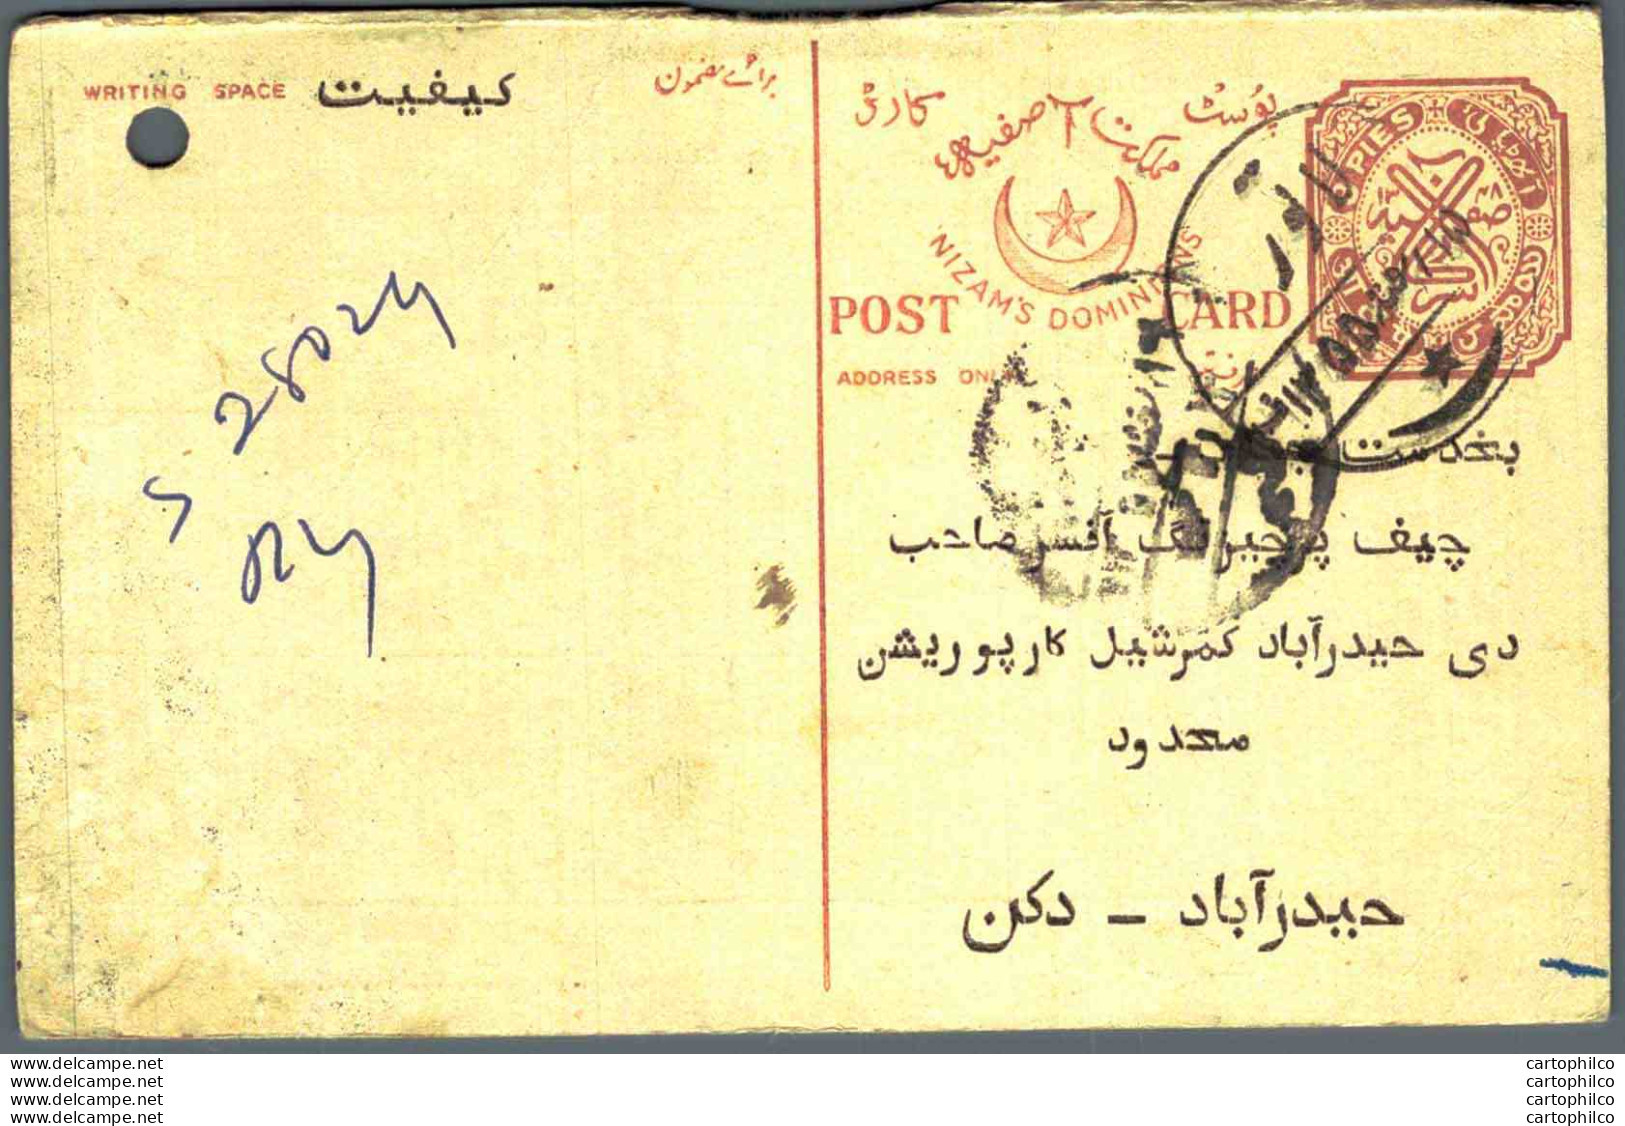 WRITING SPACE
کیفیت
برائے مضمون
پوسٹ کارڈ
مملکت آصفیہ
NIZAM'S DOMINIONS
POST CARD
ADDRESS ONLY
PIES
لاتور
بخدمت جناب
چیف پرچیزنگ آفسر صاحب
دی حیدرآباد کمرشیل کارپوریشن
محدود
حیدرآباد - دکن
28024
5
delcampe.net
delcampe.net
delcampe.net
delcampe.net
cartophilco
cartophilco
cartophilco
cartophilco